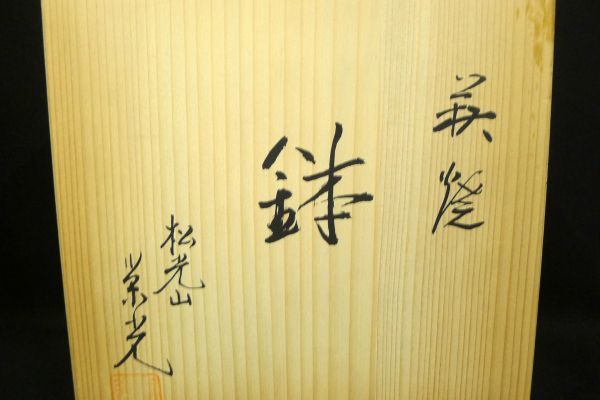 萩焼
鉢
松光山
栄光